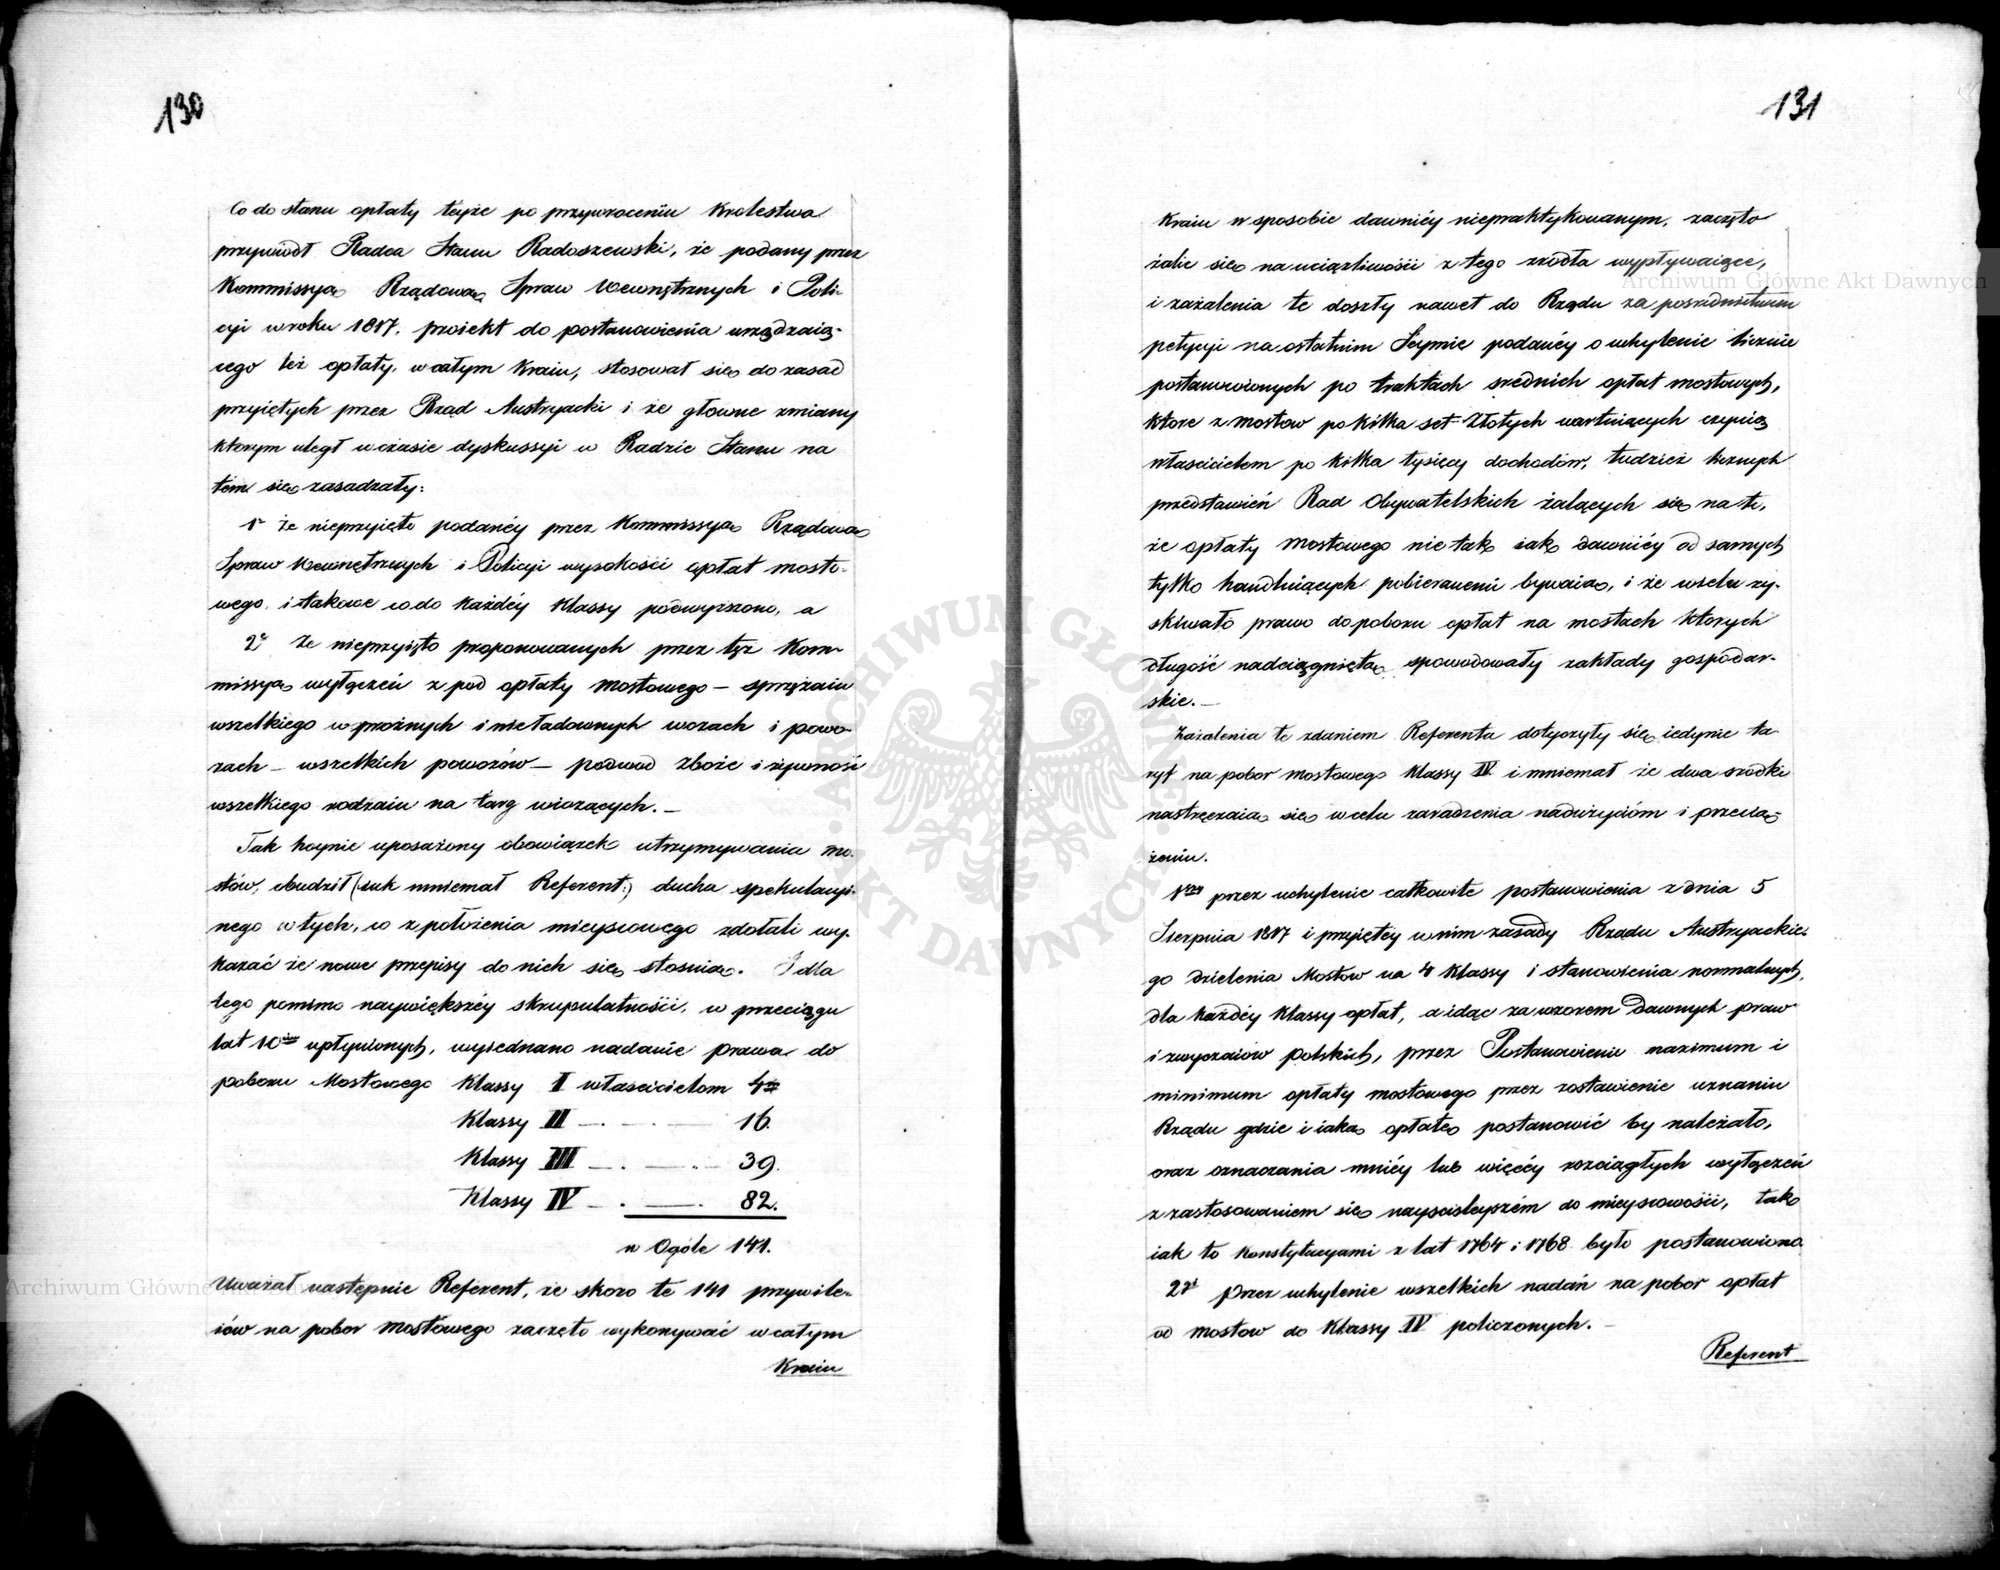 130
Co do stanu opłaty teyże po przywroceniu Krolestwa
przywiodł Radca Stanu Radoszewski, że podany przez
Kommissyą Rządową Spraw Wewnętrznych i Poli-
cyi w roku 1817. proiekt do postanowienia urządzaią-
cego też opłaty, w całym Kraiu, stosował się do zasad
przyiętych przez Rząd Austryacki i że głowne zmiany
ktorym uległ w czasie dyskussyi w Radzie Stanu na
tem się zasadzały:
1° że nieprzyięto podanéy przez Kommissyą Rządową
Spraw Wewnętrznych i Policyi wysokości opłat mosto-
wego, i takowe co do każdéy Klassy podwyższono, a
2° Że nieprzyięto proponowanych przez tęż Kom-
missyą wyłączeń z pod opłaty mostowego — sprzężaiu
wszelkiego w prożnych i nieładownych wozach i powo-
zach — wszelkich powozów — podwod zboże i żywność
wszelkiego rodzaiu na targ wiozących. —
Tak hoynie uposażony obowiązek utrzymywania mo-
stów, obudził (iak mniemał Referent:) ducha spekulacyi-
nego w tych, co z położenia mieyscowego zdołali wy-
kazać że nowe przepisy do nich się stosuią. I dla
tego pomimo naywiększéy skrupulatności, w przeciągu
lat 10ciu upłynionych, wyiednano nadanie prawa do
poboru Mostowego Klassy I właścicielom 4
Klassy II — . — 16.
Klassy III — . — 39.
Klassy IV — . — 82.
w Ogóle 141.
Uważał następnie Referent, że skoro te 141 przywile-
iów na pobor mostowego zaczęto wykonywać w całym
Kraiu
131
Kraiu w sposobie dawniéy niepraktykowanym, zaczęto
żalic się na uciążliwości z tego zrodła wypływaiące,
i zażalenia te doszły nawet do Rządu za posrednictwem
petycyi na ostatnim Seymie podanéy o uchylenie licznie
postanowionych po traktach srednich opłat mostowych,
ktore z mostow po kilka set Złotych wartuiących czynią
właścicielem po kilka tysięcy dochodów, tudzież licznych
przedstawień Rad Obywatelskich żalących się na to,
że opłaty mostowego nie tak iak dawniéy od samych
tylko handluiących pobieranemi bywaią, i że wielu zy-
skiwało prawo do poboru opłat na mostach ktorych
długość nadciągniętą spowodowały zakłady gospodar-
skie. —
Zażalenia te zdaniem Referenta dotyczyły się iedynie ta-
ryf na pobor mostowego Klassy IV i mniemał że dwa srodki
nastręczaią się w celu zaradzenia nadużyciom i przecią-
żeniu.
1mo przez uchylenie całkowite postanowienia z dnia 5
Sierpnia 1817 i przyiętéy w nim zasady Rządu Austryackie-
go dzielenia Mostow na 4 Klassy i stanowienia normalnych,
dla każdéy Klassy opłat, a idąc za wzorem dawnych praw
i zwyczaiow polskich, przez Postanowienie maximum i
minimum opłaty mostowego przez zostawienie uznaniu
Rządu gdzie i iaką opłatę postanowić by należało,
oraz oznaczania mniéy lub więcéy rozciągłych wyłączeń
z zastosowaniem się nayscisleyszém do mieyscowości, tak
iak to Konstytucyami z lat 1764 i 1768 było postanowiono
2do przez uchylenie wszelkich nadań na pobor opłat
od mostow do Klassy IV policzonych. —
Referent
Archiwum Główne Akt Dawnych
ARCHIWUM GŁÓWNE
· AKT DAWNYCH ·